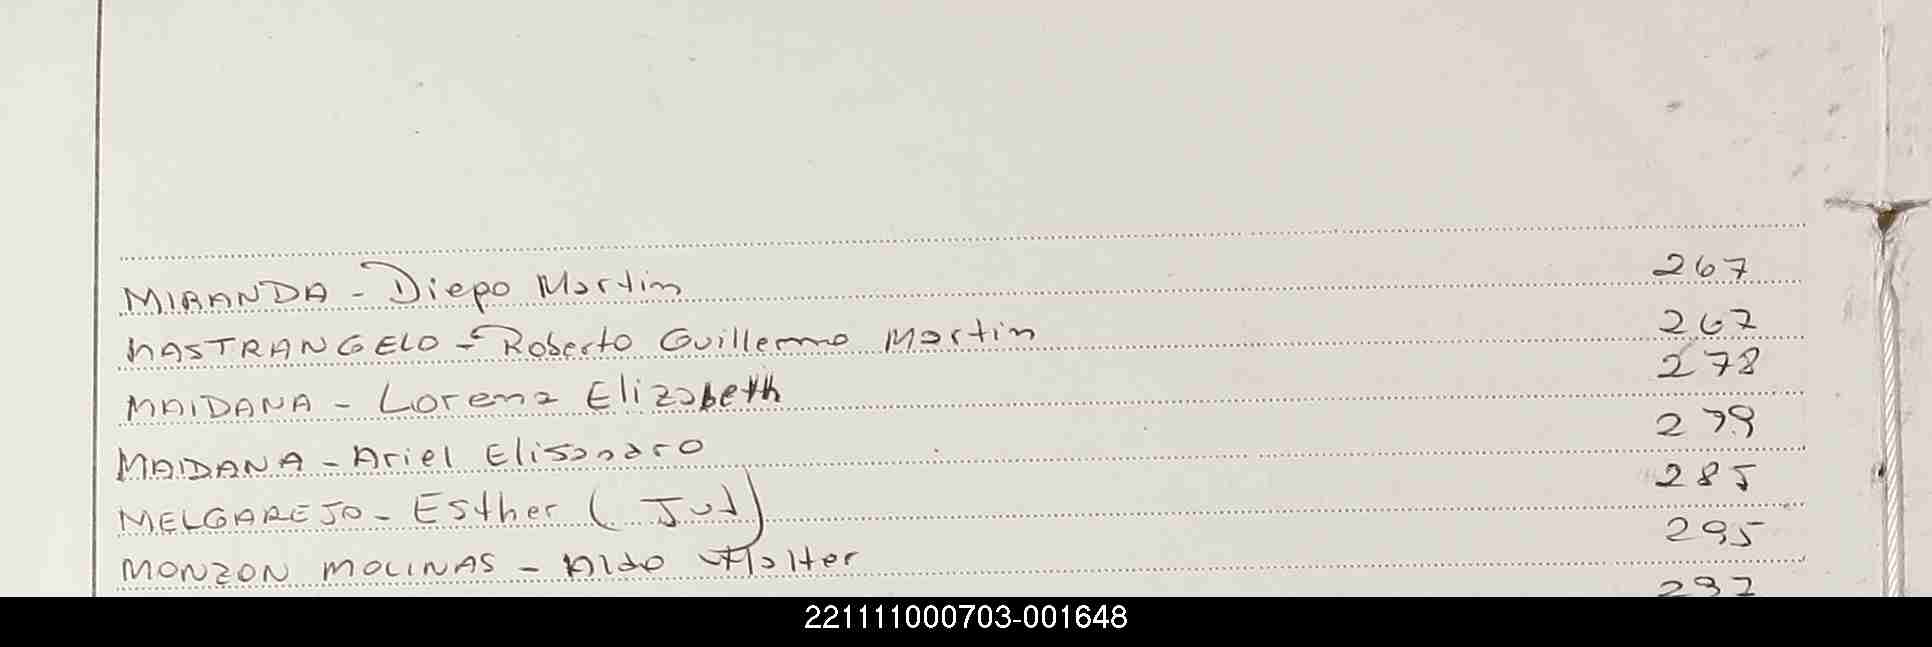 MIRANDA - Diego Martin 267
MASTRANGELO - Roberto Guillermo Martin 267
MAIDANA - Lorena Elizabeth 278
MAIDANA - Ariel Elisandro 279
MELGAREJO - Esther (Jud) 285
MONZON MOLINAS - Aldo Walter 295
297
221111000703-001648